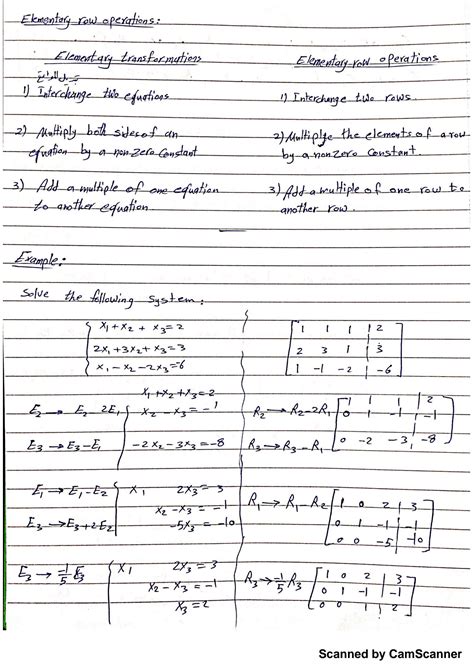 Elementary row operations:
Elementary transformations
Elementary row operations
1) Interchange two equations
1) Interchange two rows.
2) Multiply both sides of an
equation by a nonzero constant
2) Multiplye the elements of a row
by a nonzero constant.
3) Add a multiple of one equation
to another equation
3) Add a multiple of one row to
another row.
Example:
Solve the following system:
x1 + x2 + x3 = 2
2x1 + 3x2 + x3 = 3
x1 - x2 - 2x3 = -6
1 1 1 | 2
2 3 1 | 3
1 -1 -2 | -6
x1 + x2 + x3 = 2
E2 → E2 - 2E1 x2 - x3 = -1
E3 → E3 - E1 -2x2 - 3x3 = -8
1 1 1 | 2
R2 → R2 - 2R1 0 1 -1 | -1
R3 → R3 - R1 0 -2 -3 | -8
E1 → E1 - E2 x1 2x3 = 3
x2 - x3 = -1
E3 → E3 + 2E2 -5x3 = -10
R1 → R1 - R2 1 0 2 | 3
0 1 -1 | -1
0 0 -5 | -10
E3 → -1/5 E3 x1 2x3 = 3
x2 - x3 = -1
x3 = 2
R3 → -1/5 R3 1 0 2 | 3
0 1 -1 | -1
0 0 1 | 2
Scanned by CamScanner